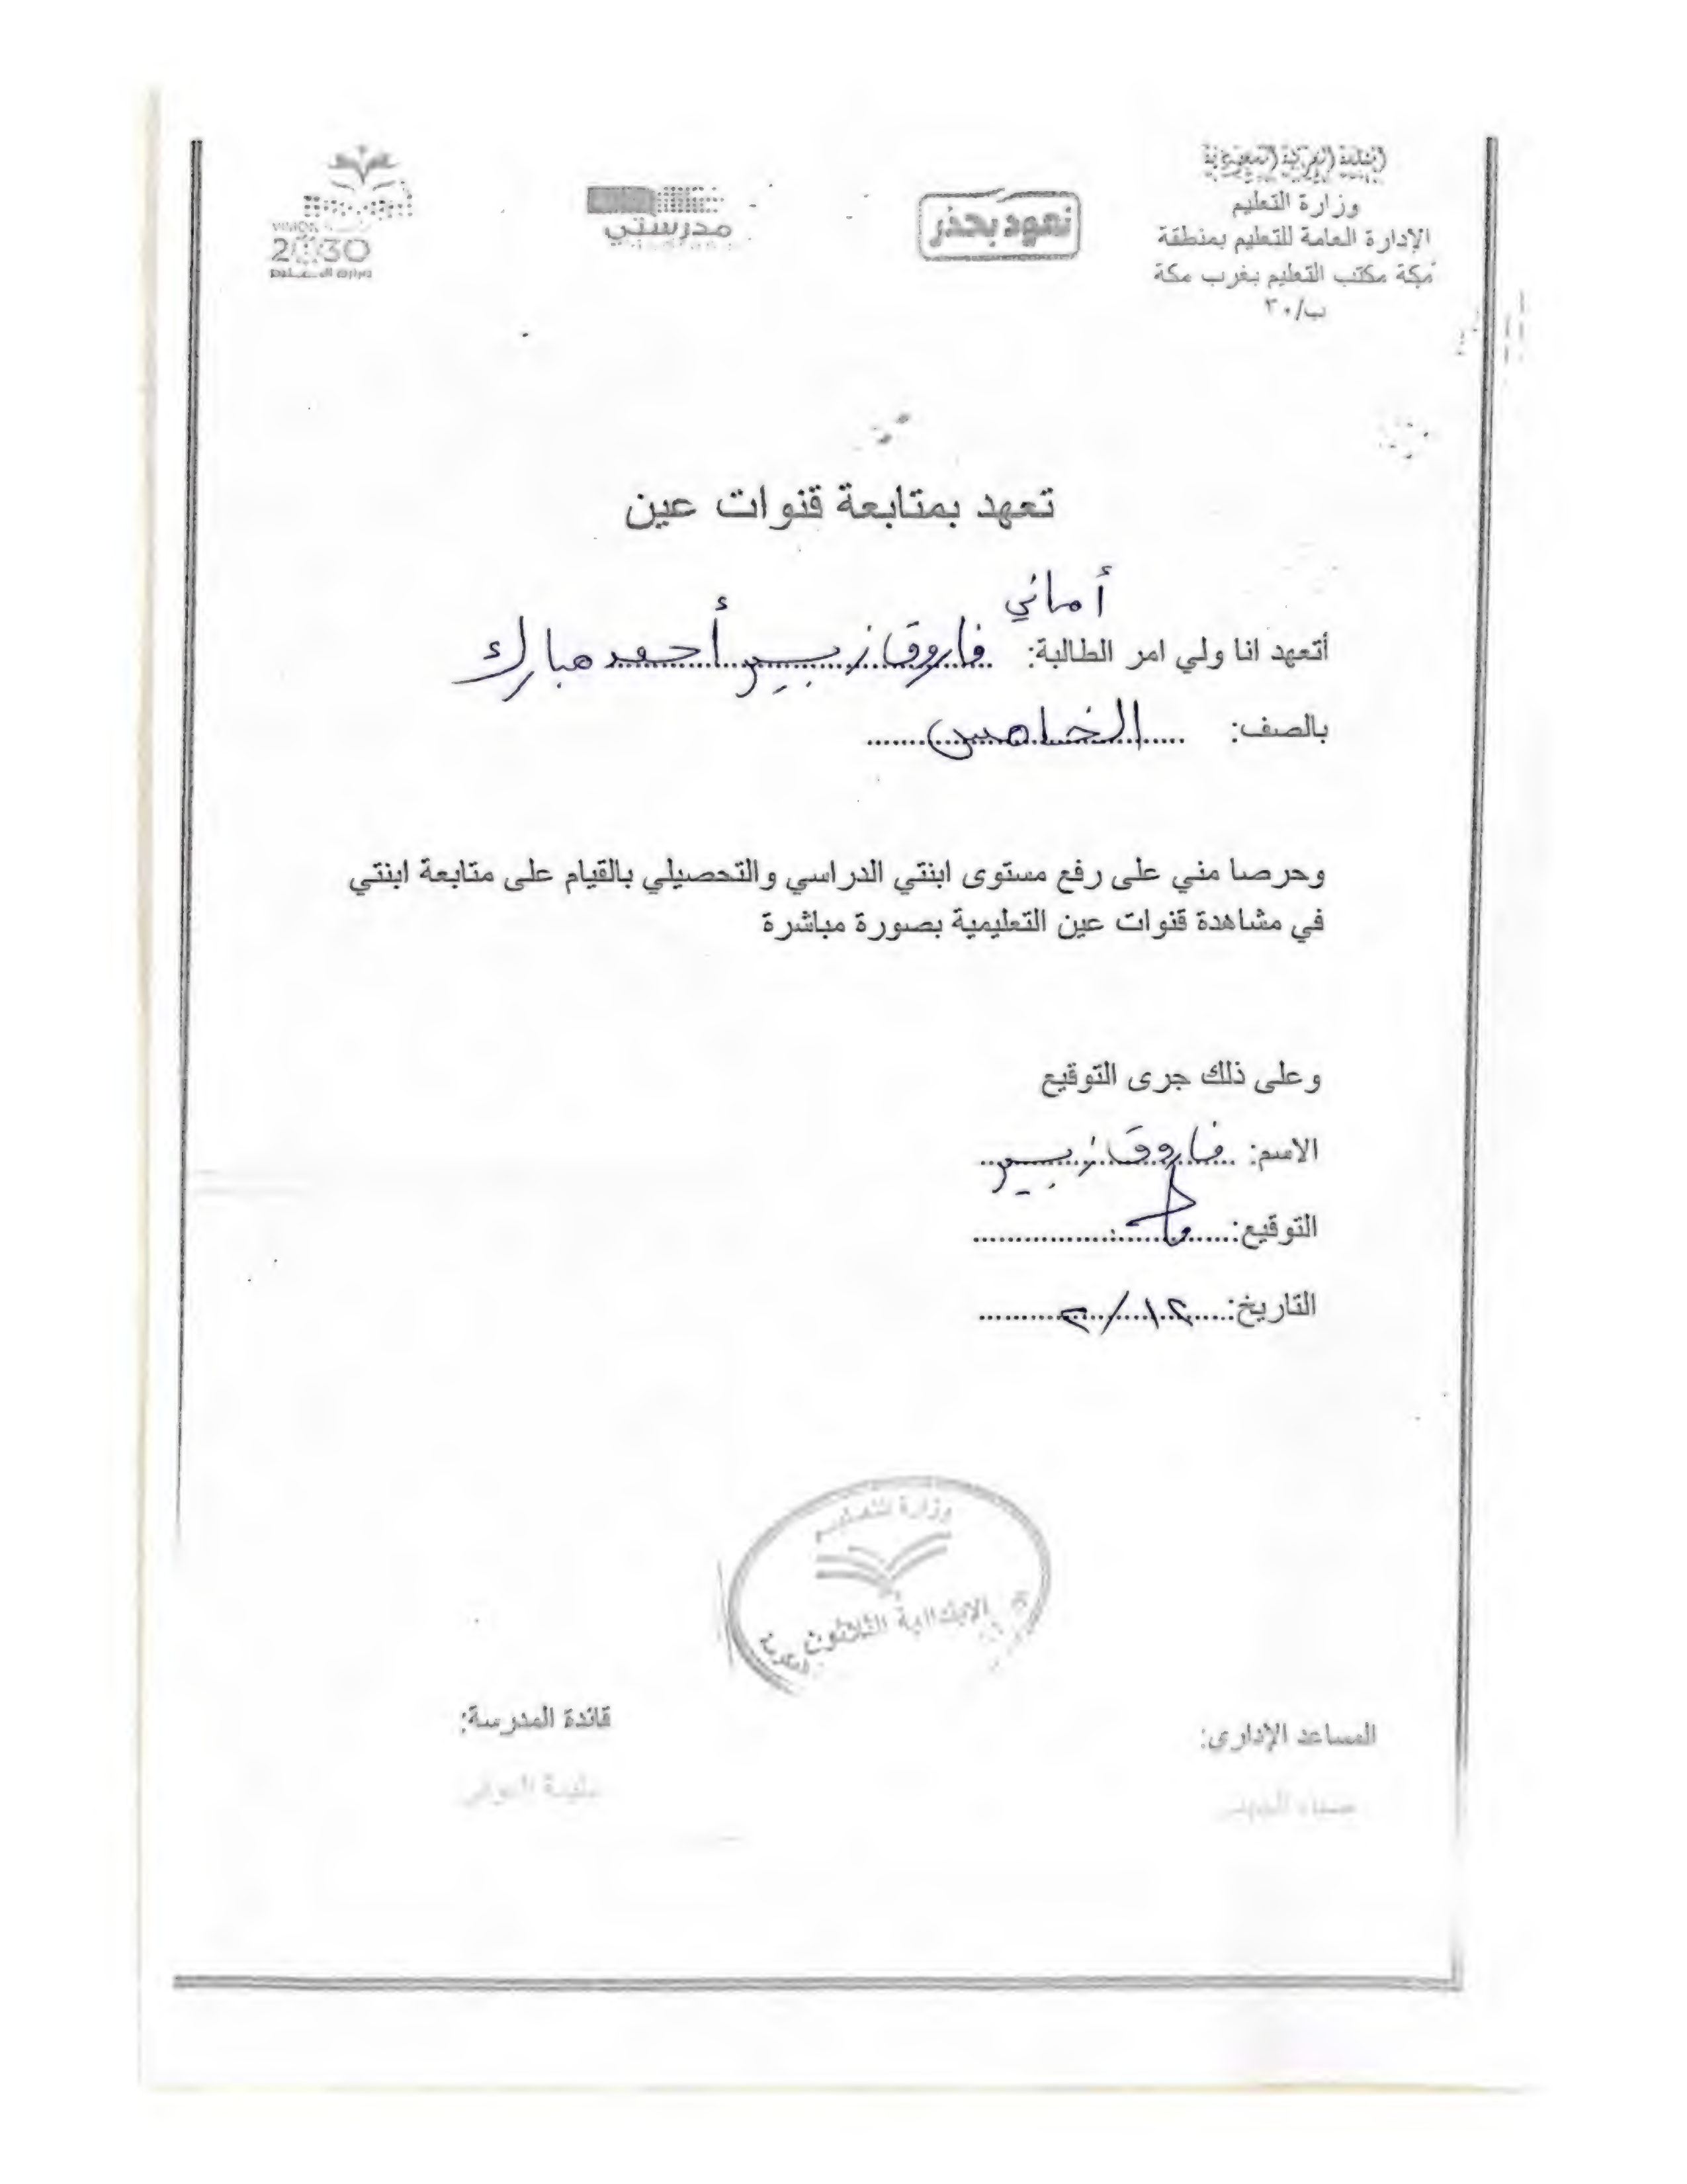 المملكة العربية السعودية
وزارة التعليم
الإدارة العامة للتعليم بمنطقة
مكة مكتب التعليم بغرب مكة
ب/٣٠
نعود بحذر
مدرستي
VISION
2030
وزارة التعليم
تعهد بمتابعة قنوات عين
أماني
أتعهد انا ولي امر الطالبة: فاروق زبير أحمد مبارك
بالصف: الخامس
وحرصا مني على رفع مستوى ابنتي الدراسي والتحصيلي بالقيام على متابعة ابنتي
في مشاهدة قنوات عين التعليمية بصورة مباشرة
وعلى ذلك جرى التوقيع
الاسم: فاروق زبير
التوقيع:
التاريخ: ١٢/٢
وزارة التعليم
الابتدائية الثلاثون
المكرمة
المساعد الإداري:
قائدة المدرسة: